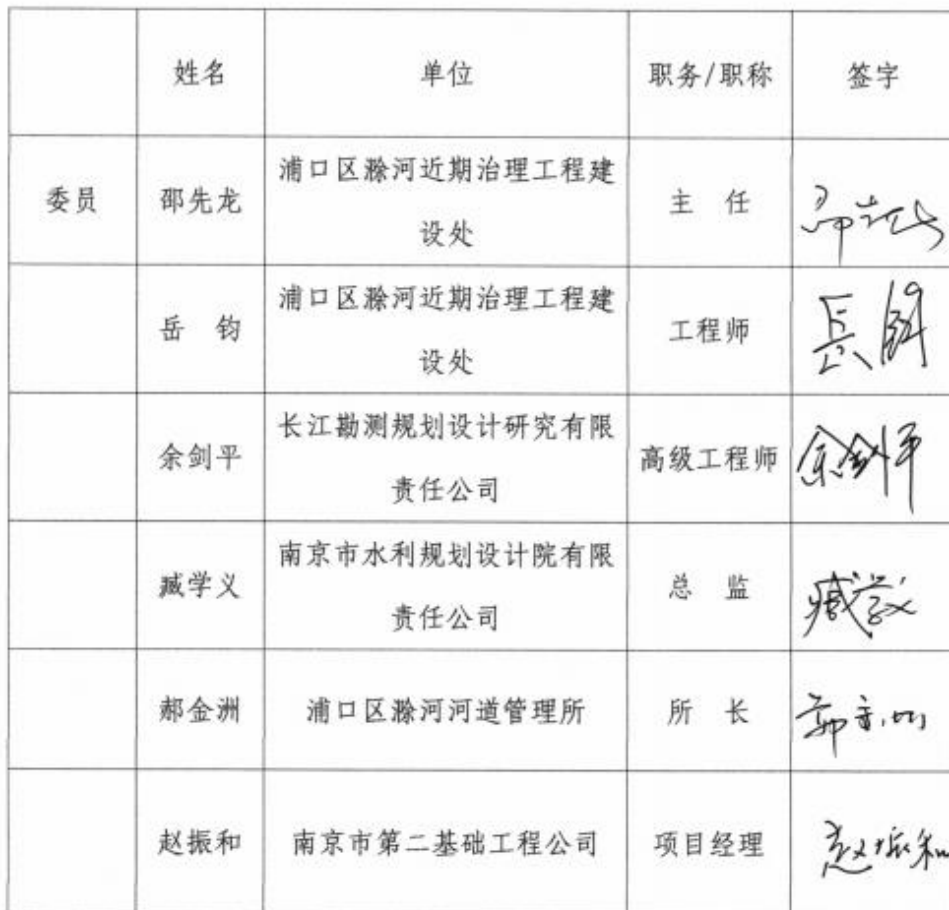 姓名 单位 职务/职称 签字
委员 邵先龙 浦口区滁河近期治理工程建
设处 主 任
岳 钧 浦口区滁河近期治理工程建
设处 工程师 岳钧
余剑平 长江勘测规划设计研究有限
责任公司 高级工程师 余剑平
臧学义 南京市水利规划设计院有限
责任公司 总 监 臧学义
郝金洲 浦口区滁河河道管理所 所 长
赵振和 南京市第二基础工程公司 项目经理 赵振和